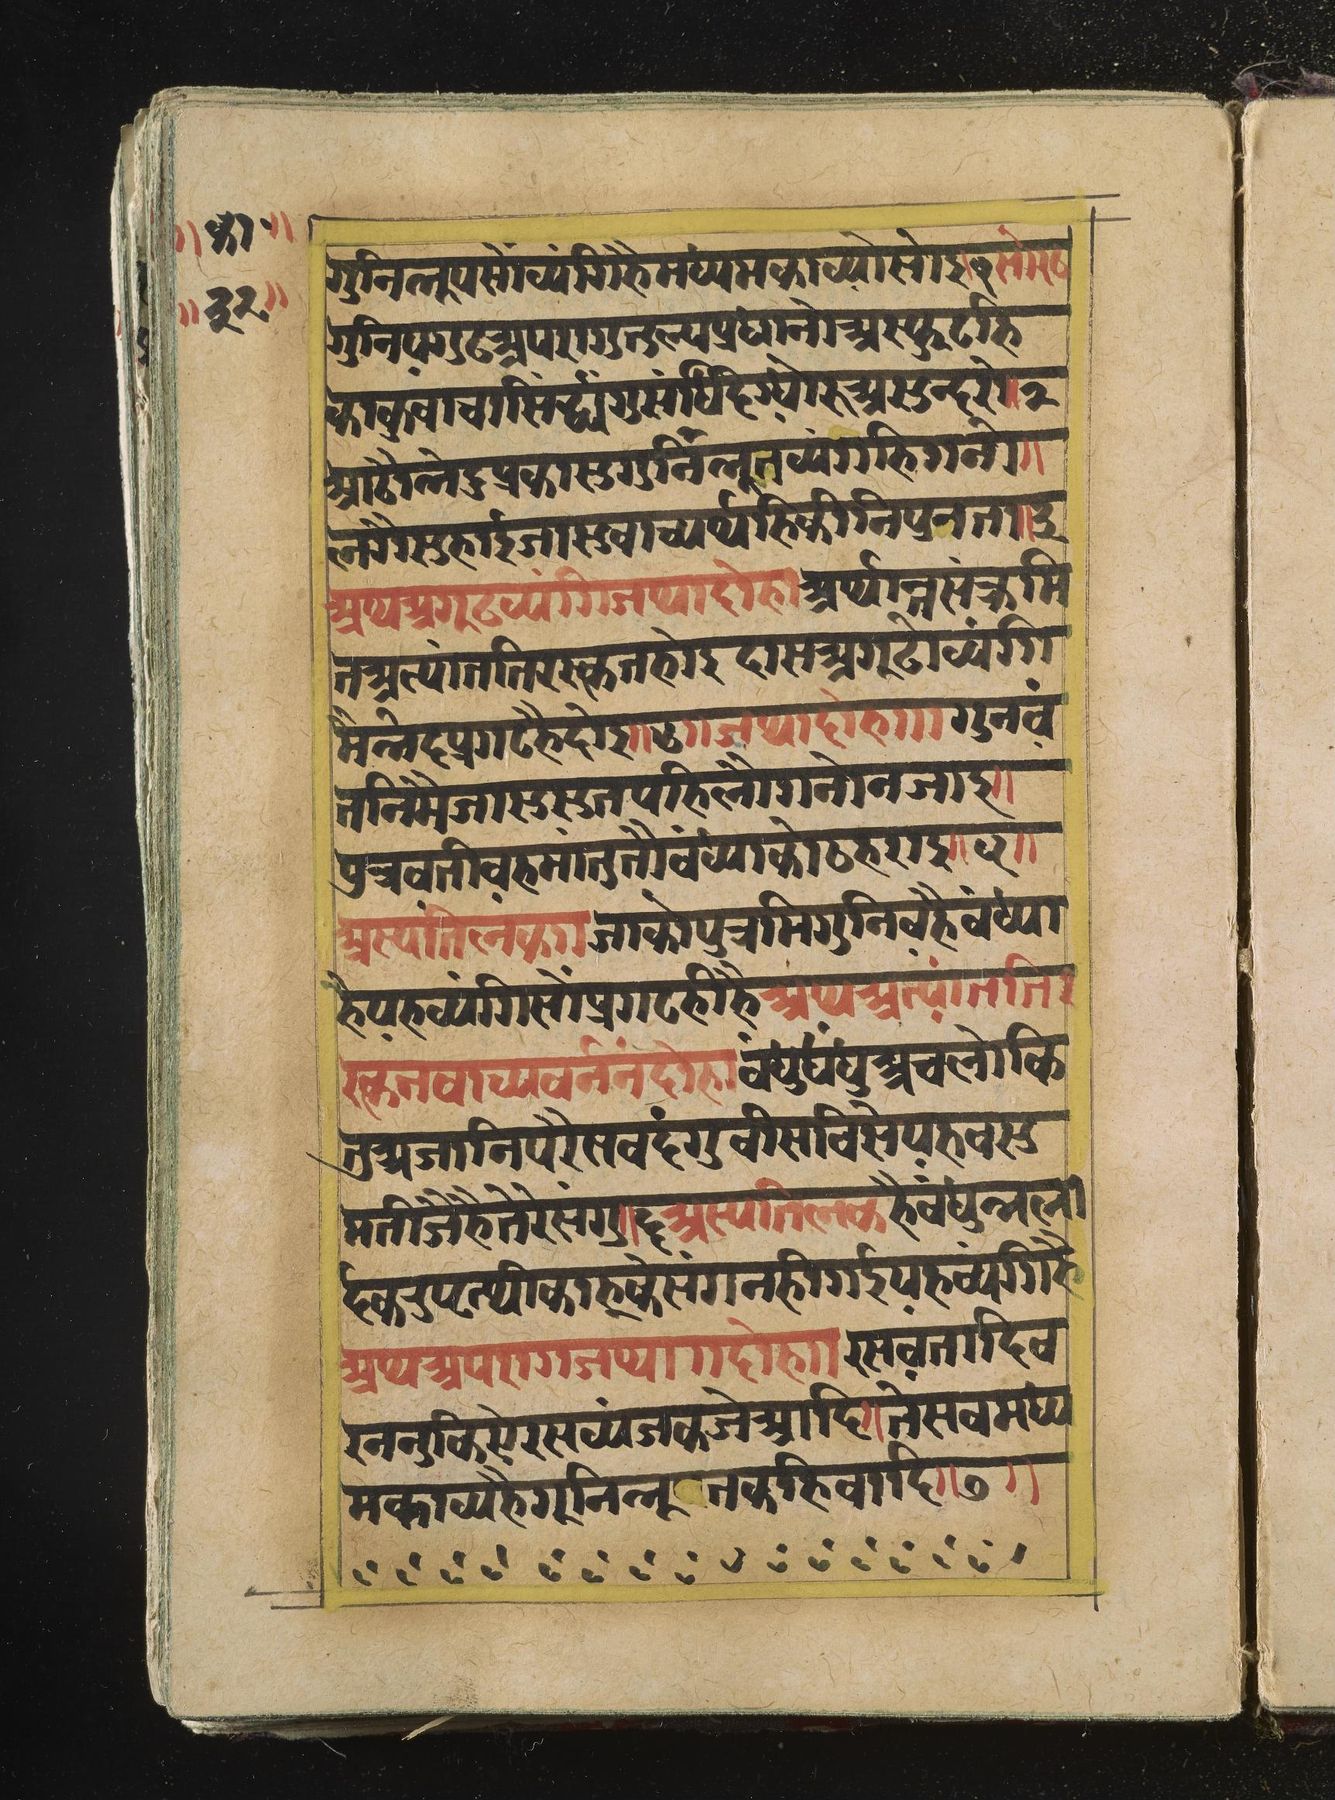 ॥का॰॥
॥३२॥
गुनिभूपसोंव्यंगिहैमध्यमकाव्योसोइ१सोरठ
गुनिषगुढअपरागुतुल्यप्रधानोअस्फुटहि
काकुवाचासिद्धांगुसंधिदिग्धोरूअसुन्दरो॥२
आठौभेदुप्रकासुगुनिभूतव्यंगहिगनो॥
लगैसुहाइजासुवाच्यर्थहिकीनिपुनता॥३
अथअगूढव्यंगिजथादोहा अर्थान्नसंक्रमि
तअत्यांततिरस्कृतहोइ दासअगूढोव्यंगि
मैभेदप्रगटैहदोइ॥४॥जथादोहा॥। गुनवं
तनिमैजासुसुतपहिलैगनोनजाइ॥
पुत्रवतीवहमांतुतौवंध्याकोठहराइ॥५॥
अस्यतिलका जाकोपुत्रमिगुनिवैहैवंध्या
हैयहव्यंगिसोंप्रगटहीहै अथअत्यांतति
रस्कृतवाच्यवर्ननंदोहा वंधुधंधुअचलोकि
तुअजानिपरैसवढंगुवीसविसेयहवसु
मतीजैहैतेरेसंगु॥६अस्यतिलक हैवंधुभला
ईकउपत्थीकाहूकेसंगनहीगईयहव्यंगिहै
अथअपरागजथा॥दोहा॥ रसवंतादिव
रननुकिएरसव्यंजकजेआदि॥तेसवमध्य
मकाव्यहैगूनिभू तकहिवादि॥७॥